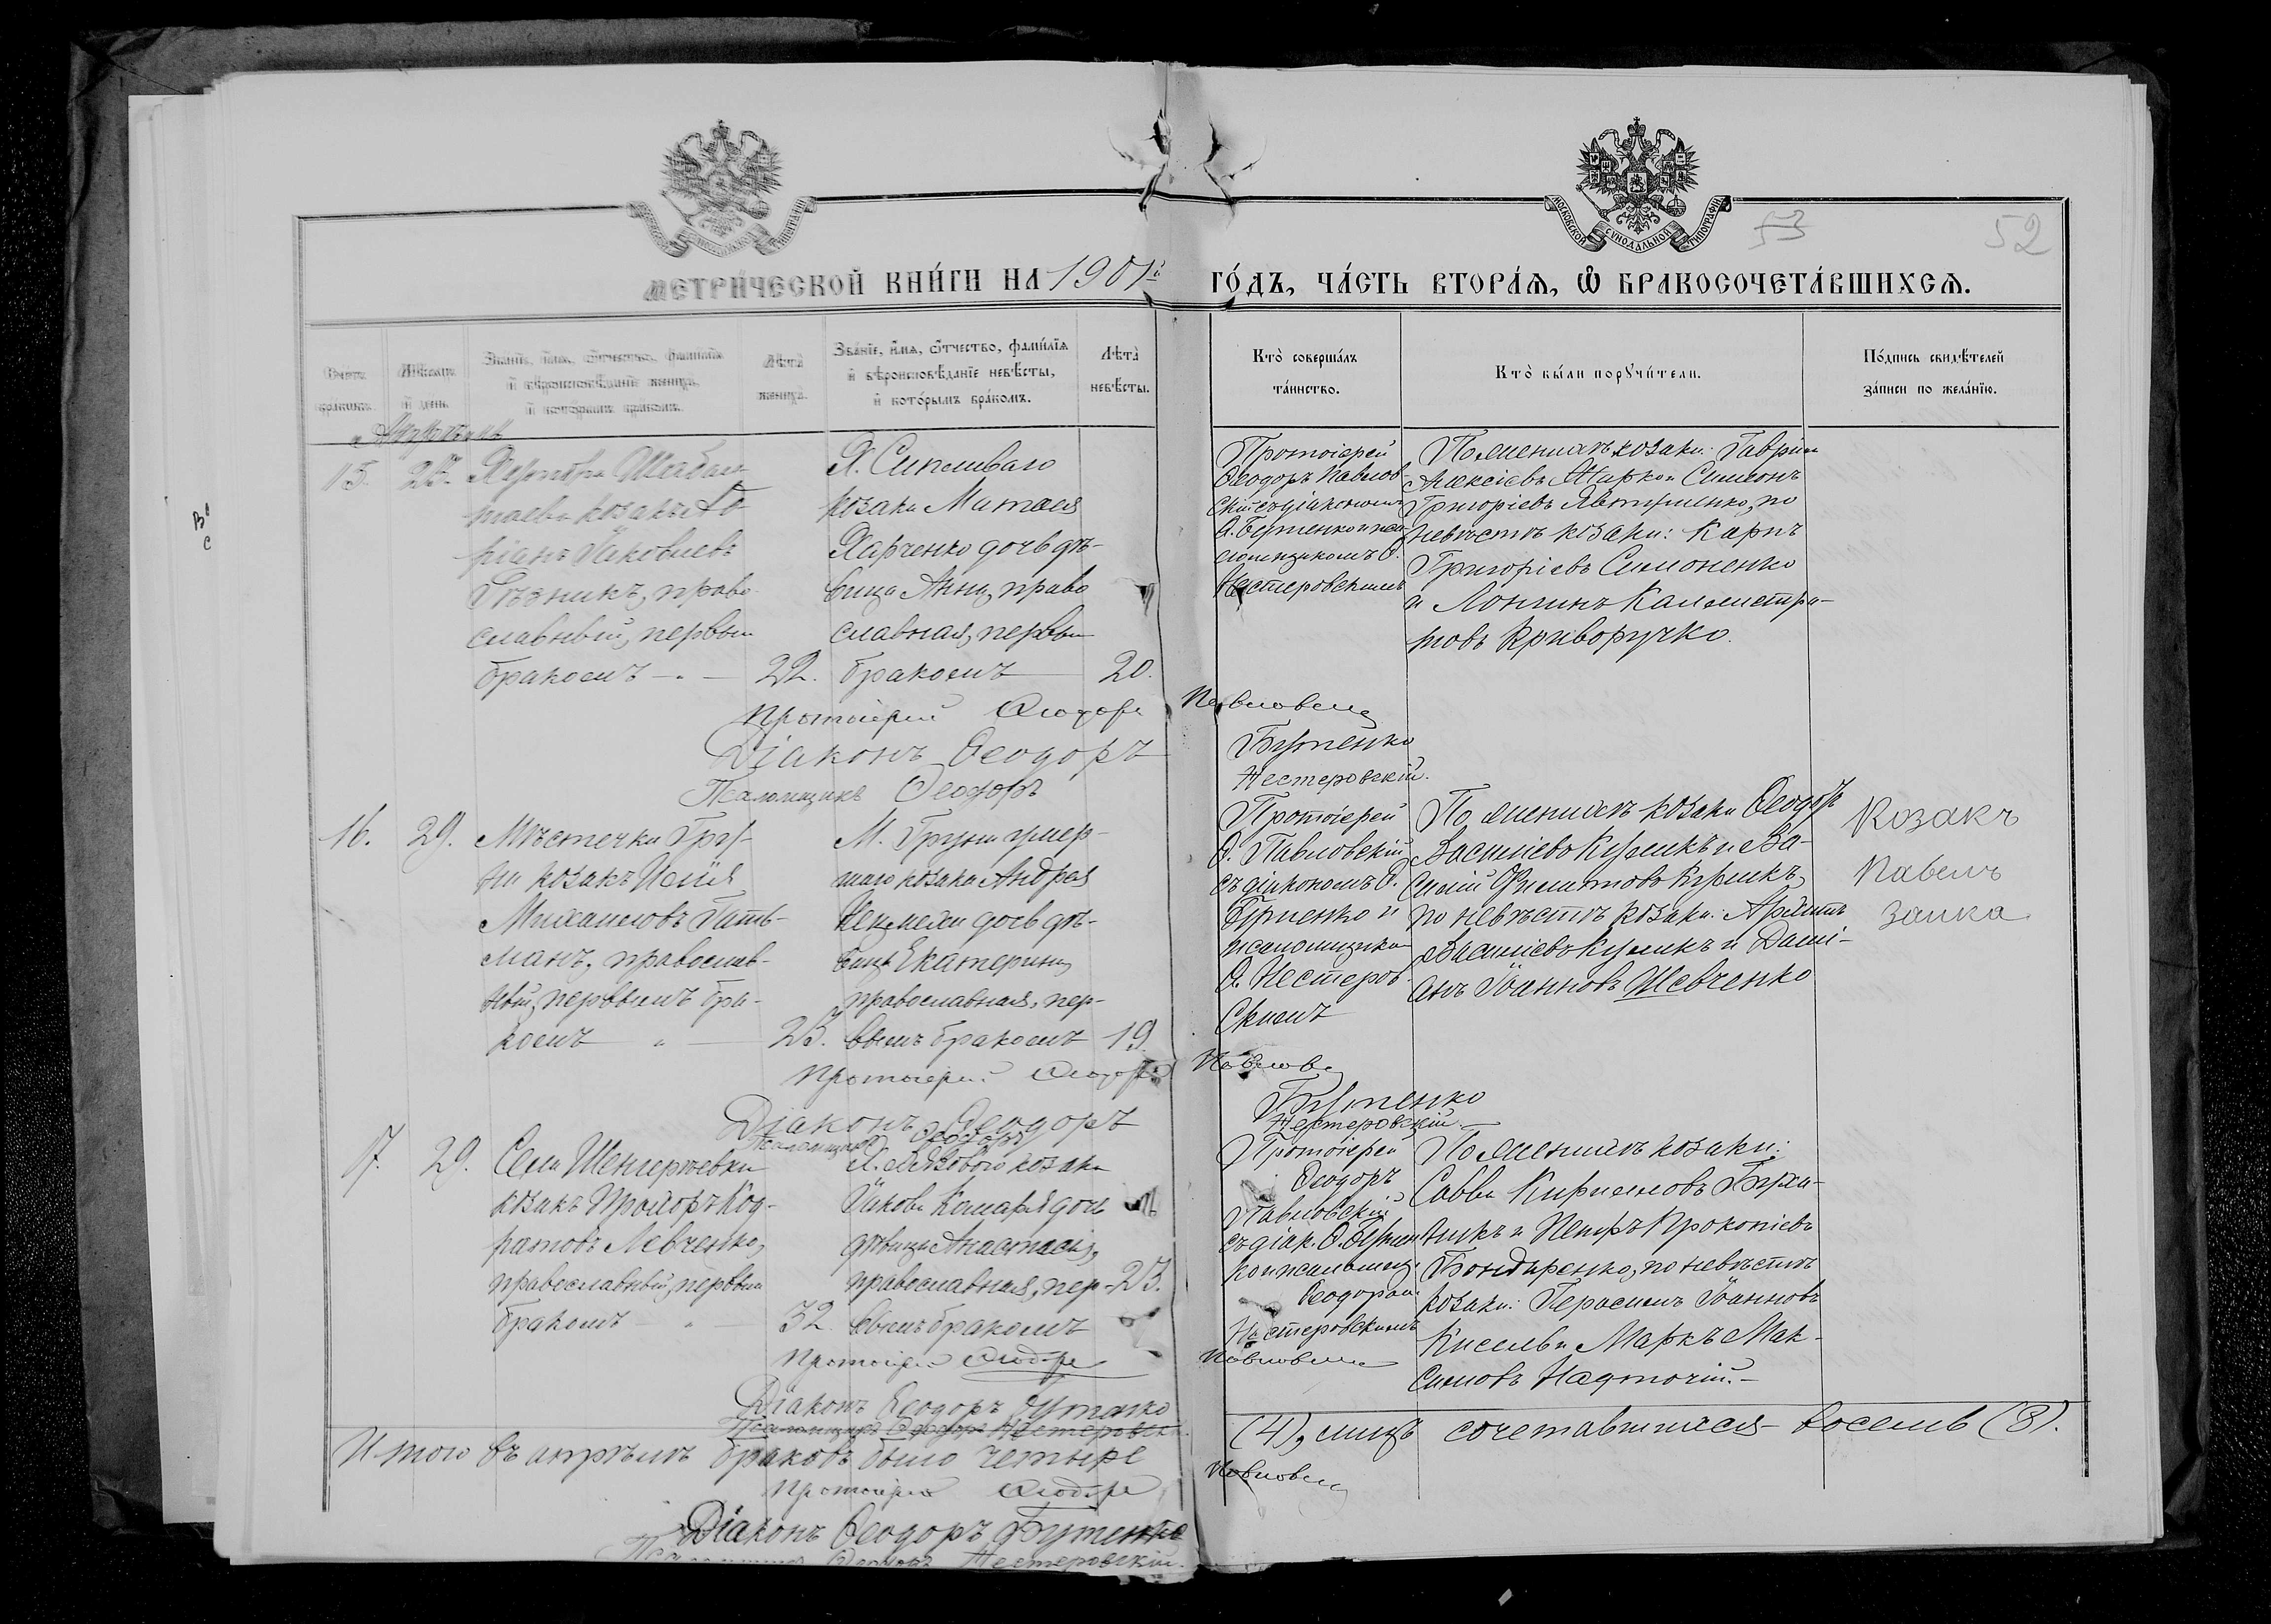 МОСКОВСКОЙ СѴНОДАЛЬНОЙ ТИПОГРАФІИ
53
52
МЕТРИ́ЧЕСКОЙ КНИ́ГИ НА 1901й ГО́ДЪ, ЧА́СТЬ ВТОРА́Ѧ, Ѽ БРАКОСОЧЕТА́ВШИХСѦ.
Счетъ браковъ.
Мѣсяцъ и день.
Званіе, имя, отчество, фамилія
и вѣроисповѣданіе жениха,
и которымъ бракомъ.
Лѣта жениха.
Званіе, имя, отчество, фамилія
и вѣроисповѣданіе невѣсты,
и которымъ бракомъ.
Лѣта невѣсты.
Кто совершалъ
таинство.
Кто были поручители.
Подпись свидѣтелей
записи по желанію.
15.
козакъ
ріанъ Іаковлевъ
Рѣзникъ, право
славный, первым
бракомъ 22.
Х. Сипливаго
козака Матѳея
Харченко дочь дѣ-
вица Анна, право
славная, первым
бракомъ 20.
Протоіерей
Ѳеодоръ Павлов
скій съ діакономъ
Ѳ. Бутенко и пса
ломщикомъ Ѳ.
Нестеровскимъ
По женихѣ козаки: Гаврiил
Алексіевъ Жирко и Симеонъ
Григоріевъ Явтушенко, по
невѣстѣ козаки: Карпъ
Григоріевъ Симоненко
и Лонгинъ Каллистра-
товъ Криворучко.
Протоіерей Ѳеодоръ Павловскій
Діаконъ Ѳеодоръ Бутенко
Псаломщикъ Ѳеодоръ Нестеровскій.
16. 29.
Мѣстечка Гру-
ни козакъ Исаія
Михаиловъ Гать-
манъ, православ-
ный, первымъ бра-
комъ 25.
М. Груни умер-
шаго козака Андрея
дочь дѣ-
вица Екатерина,
православная, пер-
вымъ бракомъ 19.
Протоіерей
Ѳ. Павловскій
съ діакономъ Ѳ.
Бутенко и
псаломщиком
Ѳ. Нестеров
скимъ
По женихѣ козаки Ѳеодоръ
Василіевъ Куликъ и Ва-
силій Филиповъ Куликъ,
по невѣстѣ козаки:
Василіевъ Куликъ и Дамі-
анъ Іоанновъ Шевченко
Козакъ
Павелъ
Заика
Протоіерей Ѳеодоръ Павловскій
Діаконъ Ѳеодоръ Бутенко
Псаломщикъ Ѳеодоръ Нестеровскій
17. 29.
Села Шенгерѣевки
козакъ Прохоръ Код-
ратовъ Левченко,
православный, первым
бракомъ 32.
козака
Іакова Комаря дочь
дѣвица Анастасія,
православная, пер- 23.
вымъ бракомъ
Протоіерей
Ѳеодоръ
Павловскій
съ діак. Ѳ. Бутен
ко и псаломщ.
Ѳеодоромъ
Нестеровскимъ
По женихѣ козаки:
Савва Кирилловъ
и Петръ Прокопіевъ
Бондаренко, по невѣстѣ
козаки: Герасимъ Іоанновъ
Кисель и Маркъ Мак-
симовъ Надточій.
Протоіерей Ѳеодоръ Павловскій
Діаконъ Ѳеодоръ Бутенко
Псаломщикъ Ѳеодоръ Нестеровскій
Итого въ апрѣлѣ браковъ было четыре (4), лицъ сочетавшихся восемь (8).
Протоіерей Ѳеодоръ Павловскій
Діаконъ Ѳеодоръ Бутенко
Псаломщикъ Ѳеодоръ Нестеровскій.